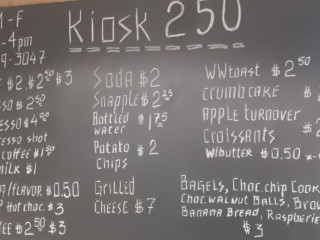 M-F
Kiosk 250
-4pm
9-3047
$2, $2.50 $3
$2.50
$4.00
shot
coffee $1
milk $1
/flavor $0.50
Hot choc. $3
$2.50 $3
Soda $2
Snapple $2.25
Bottled water $1.75
Potato Chips $2
Grilled
Cheese $7
WWtoast $2.50
crumbcake $
Apple turnover
Croissants $2
W/butter $0.50
Bagels, choc.chip Cook
Choc.walnut Balls, Brow
Banana Bread, Raspberie
$3